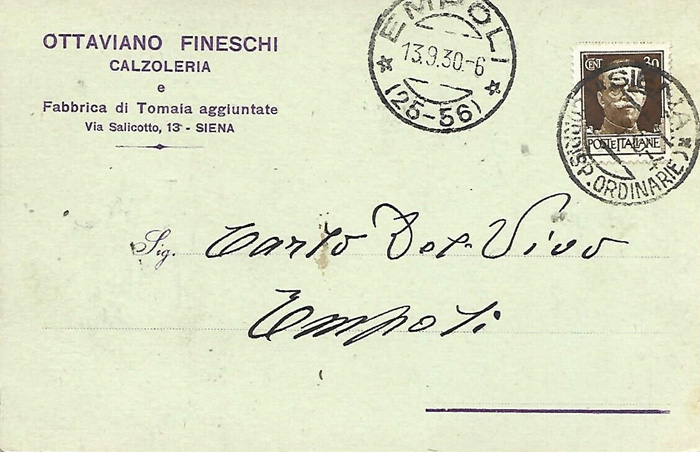 OTTAVIANO FINESCHI
CALZOLERIA
e
Fabbrica di Tomaia aggiuntate
Via Salicotto, 13 - SIENA
EMPOLI
13.9.30-6
(25-56)
CENT 30
POSTE ITALIANE
SIENA
CORRISP. ORDINARIE
Sig. Carlo Del Vivo
Empoli